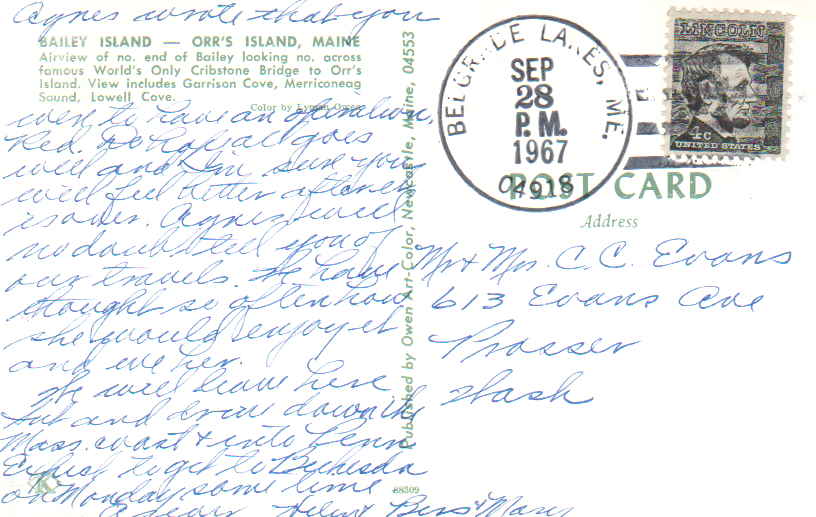 Agnes wrote that you
BAILEY ISLAND — ORR'S ISLAND, MAINE
Airview of no. end of Bailey looking no. across
famous World's Only Cribstone Bridge to Orr's
Island. View includes Garrison Cove, Merriconeag
Sound, Lowell Cove.
Color by Lyman Owen
were to have an operation,
Red. Do hope all goes
well and I'm sure you
will feel better after
is over. Agnes will
no doubt tell you of
our travels. We have
thought so often how
she would enjoy it
and we her.
We will leave here
and drive down the
Mass. coast & into Penn
Expect to get to Bethesda
on Monday some time
Bess & Mary
K
88309
Published by Owen Art-Color, Newcastle, Maine, 04553
BELGRADE LAKES, ME.
SEP
28
P.M.
1967
04918
LINCOLN
4c
UNITED STATES
POST CARD
Address
Mr & Mrs. C. C. Evans
613 Evans Ave
Prosser
Wash